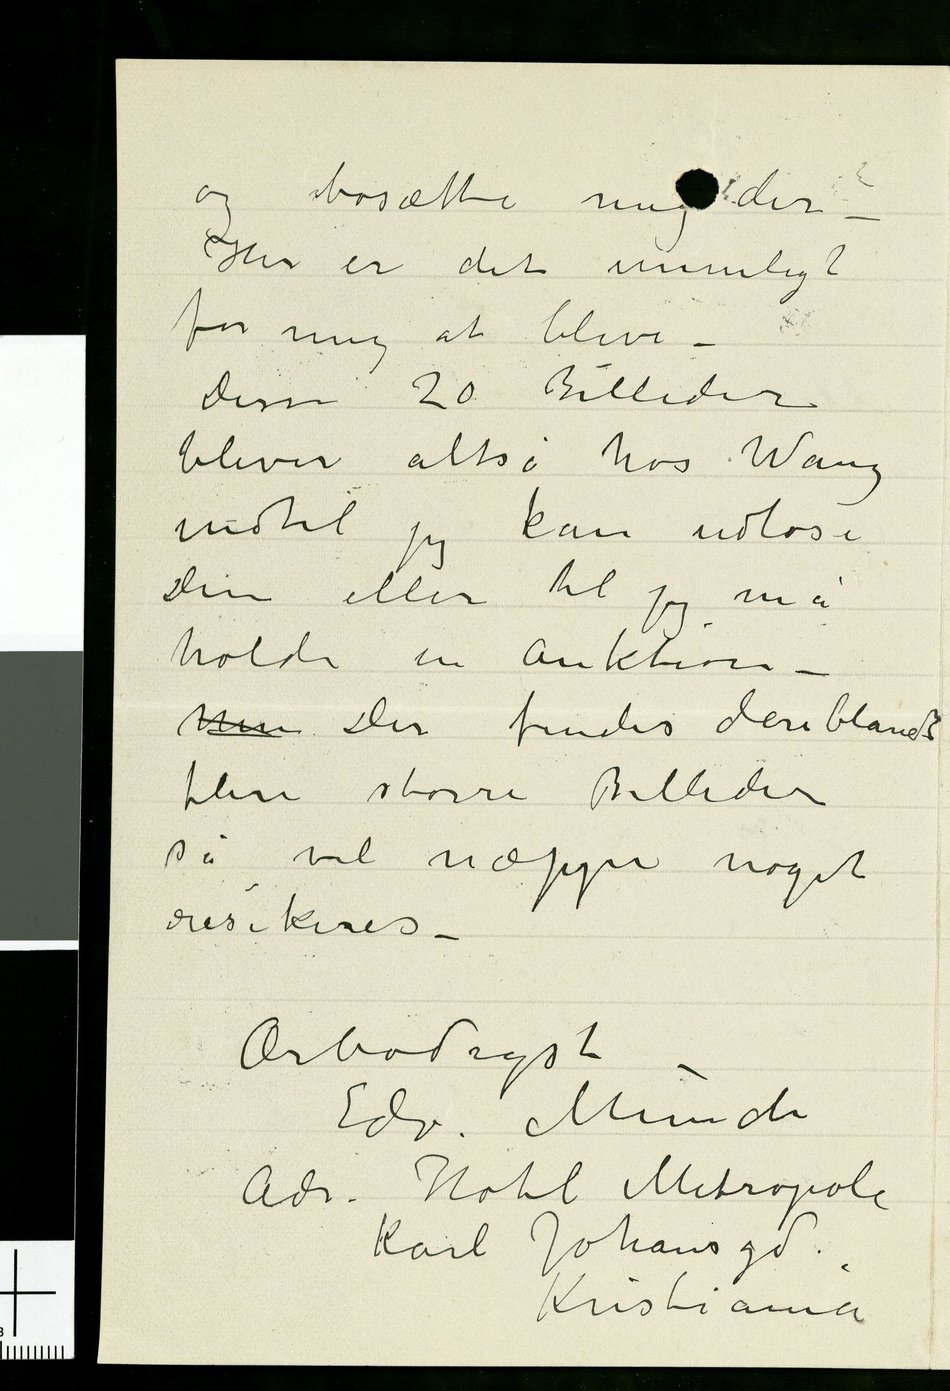 og bosætte mig der –
Her er det umuligt
for mig at blive –
Disse 20 Billeder
bliver altså hos Wang
indtil jeg kan udløse
Dem eller til jeg må
holde en auktion –
Der findes deriblandt
flere større Billeder
så vel næppe noget
risikeres –
Ærbødigst
Edv. Munch
Adr. Hotel Metropole
Karl Johansgd.
Kristiania